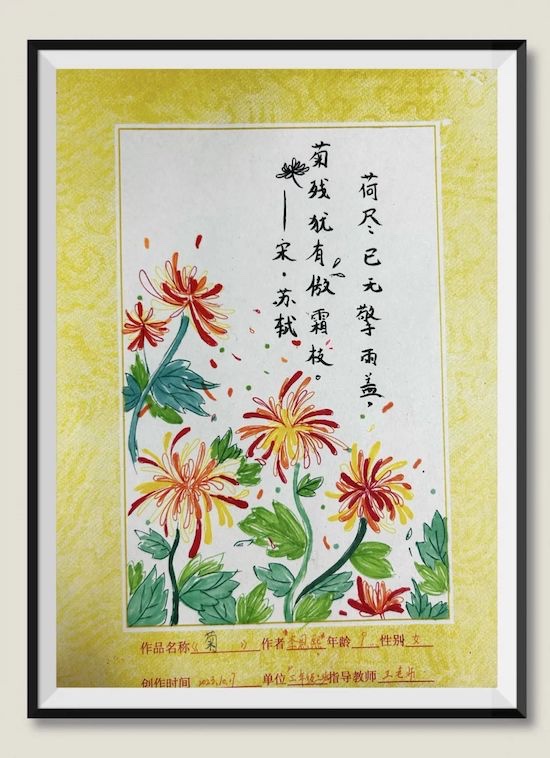 荷尽已无擎雨盖，
菊残犹有傲霜枝。
——宋·苏轼
作品名称《菊》 作者 李恩熙 年龄 9 性别 女
创作时间 2023.10.7 单位 三年级 指导教师 王老师